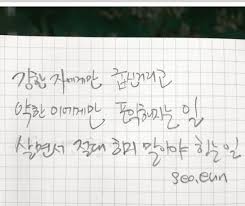 강한 자에게만 굽신거리고
약한 이에게만 포악해지는 일
살면서 절대 하지 말아야 하는 일
seo.eun